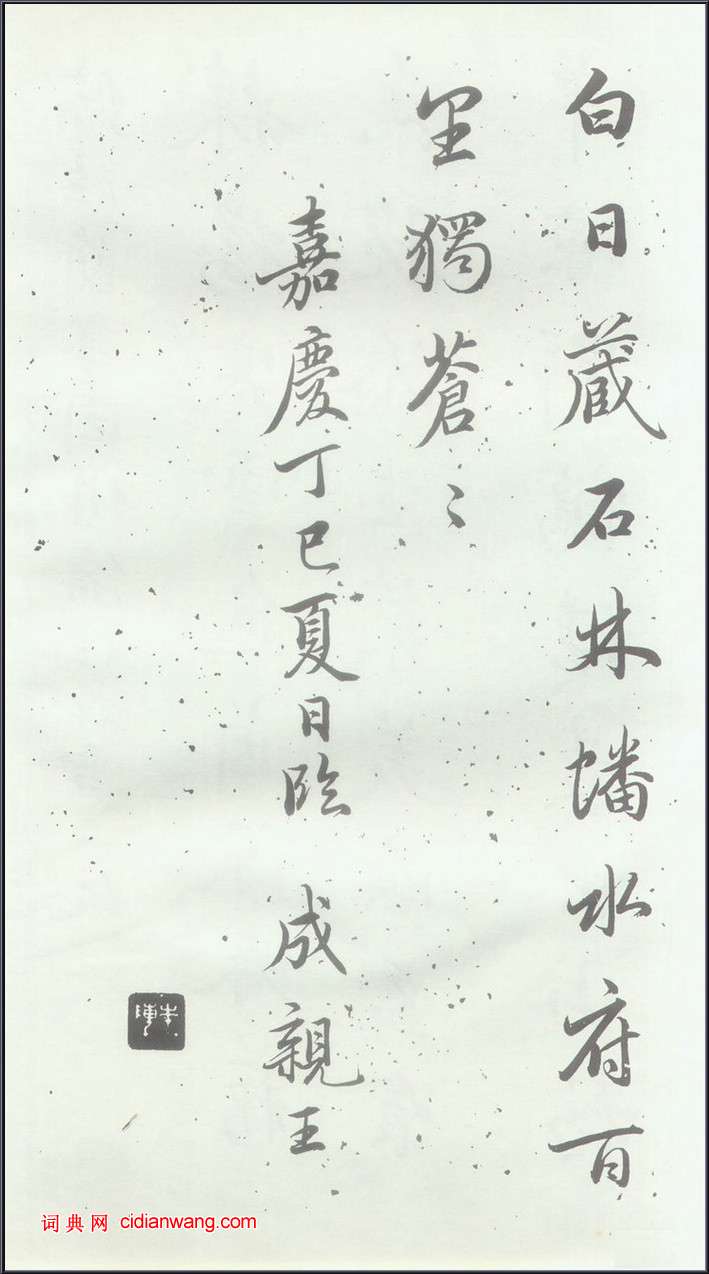 白日蔵石林蟠水府百
里獨蒼〻
嘉慶丁巳夏日臨 成親王
词典网 cidianwang.com